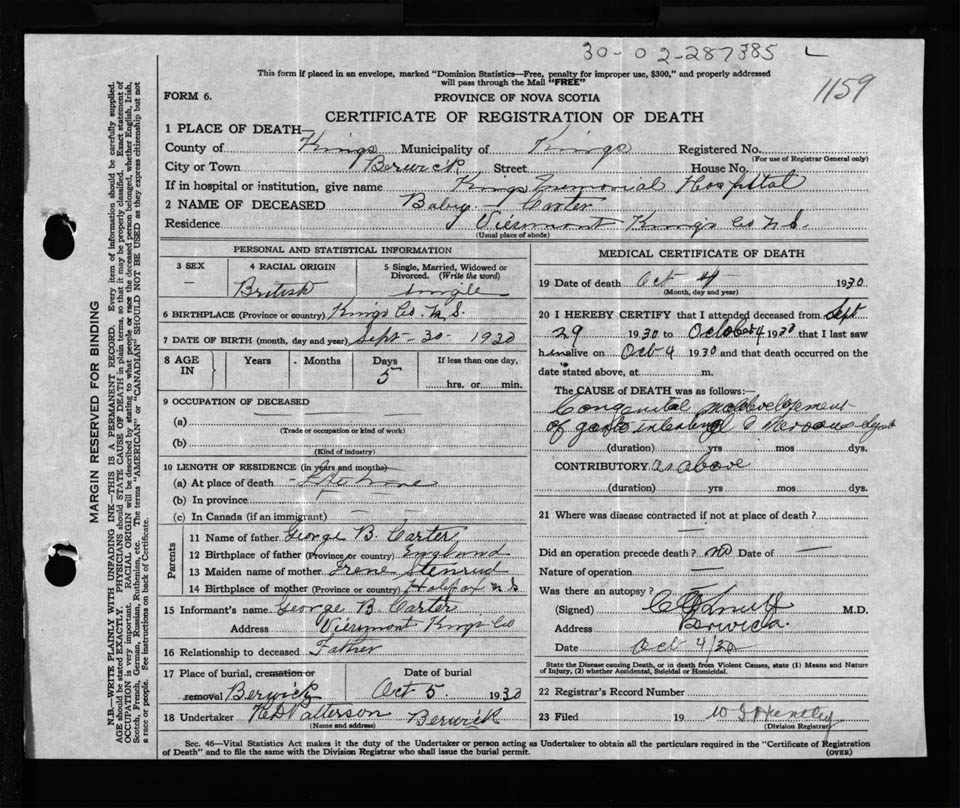 30-02-287385 L
1159
This form if placed in an envelope, marked "Dominion Statistics—Free, penalty for improper use, $300," and properly addressed
will pass through the Mail "FREE"
FORM 6.
PROVINCE OF NOVA SCOTIA
CERTIFICATE OF REGISTRATION OF DEATH
1 PLACE OF DEATH—
County of Kings Municipality of Kings Registered No.
(For use of Registrar General only)
City or Town Berwick Street House No.
If in hospital or institution, give name Kings Memorial Hospital
2 NAME OF DECEASED Baby Carter
Residence Kings Co N.S.
(Usual place of abode)
PERSONAL AND STATISTICAL INFORMATION
3 SEX 4 RACIAL ORIGIN 5 Single, Married, Widowed or Divorced. (Write the word)
— British single
6 BIRTHPLACE (Province or country) Kings Co. N.S.
7 DATE OF BIRTH (month, day and year) Sept - 30 - 1930
8 AGE IN Years Months Days If less than one day,
5
hrs. or min.
9 OCCUPATION OF DECEASED
(a)
(Trade or occupation or kind of work)
(b)
(Kind of industry)
10 LENGTH OF RESIDENCE (in years and months)
(a) At place of death - Life time
(b) In province
(c) In Canada (if an immigrant) —
Parents
11 Name of father George B. Carter
12 Birthplace of father (Province or country) England
13 Maiden name of mother Irene
14 Birthplace of mother (Province or country) Halifax N S
15 Informant's name George B. Carter
Address Kings Co
16 Relationship to deceased Father
17 Place of burial, cremation or removal Berwick Date of burial Oct 5 1930
18 Undertaker Patterson Berwick
(Name and address)
MEDICAL CERTIFICATE OF DEATH
19 Date of death Oct 4 1930
(Month, day and year)
20 I HEREBY CERTIFY that I attended deceased from Sept
29 1930 to October 4 1930 that I last saw
him alive on Oct 4 1930 and that death occurred on the
date stated above, at m.
The CAUSE OF DEATH was as follows:
Congenital maldevelopment
of gastro intestinal & nervous
(duration) yrs mos dys.
CONTRIBUTORY as above
(duration) yrs mos dys.
21 Where was disease contracted if not at place of death?
—
Did an operation precede death? no Date of —
Nature of operation —
Was there an autopsy?
(Signed) M.D.
Address Berwick
Date Oct 4/30
State the Disease causing Death, or in death from Violent Causes, state (1) Means and Nature
of Injury, (2) whether Accidental, Suicidal or Homicidal.
22 Registrar's Record Number
23 Filed 19
(Division Registrar)
Sec. 46—Vital Statistics Act makes it the duty of the Undertaker or person acting as Undertaker to obtain all the particulars required in the "Certificate of Registration
of Death" and to file the same with the Division Registrar who shall issue the burial permit.
(OVER)
MARGIN RESERVED FOR BINDING
N.B.—WRITE PLAINLY WITH UNFADING INK—THIS IS A PERMANENT RECORD. Every item of information should be carefully supplied.
AGE should be stated EXACTLY. PHYSICIANS should STATE CAUSE OF DEATH in plain terms, so that it may be properly classified. Exact statement of
OCCUPATION is very important. RACIAL ORIGIN will be described by stating to what people or race the deceased person belonged, whether English, Irish,
Scotch, French, German, Russian, Ruthenian, etc. The terms "AMERICAN" or "CANADIAN" SHOULD NOT BE USED as they express citizenship but not
a race or people. See instructions on back of Certificate.